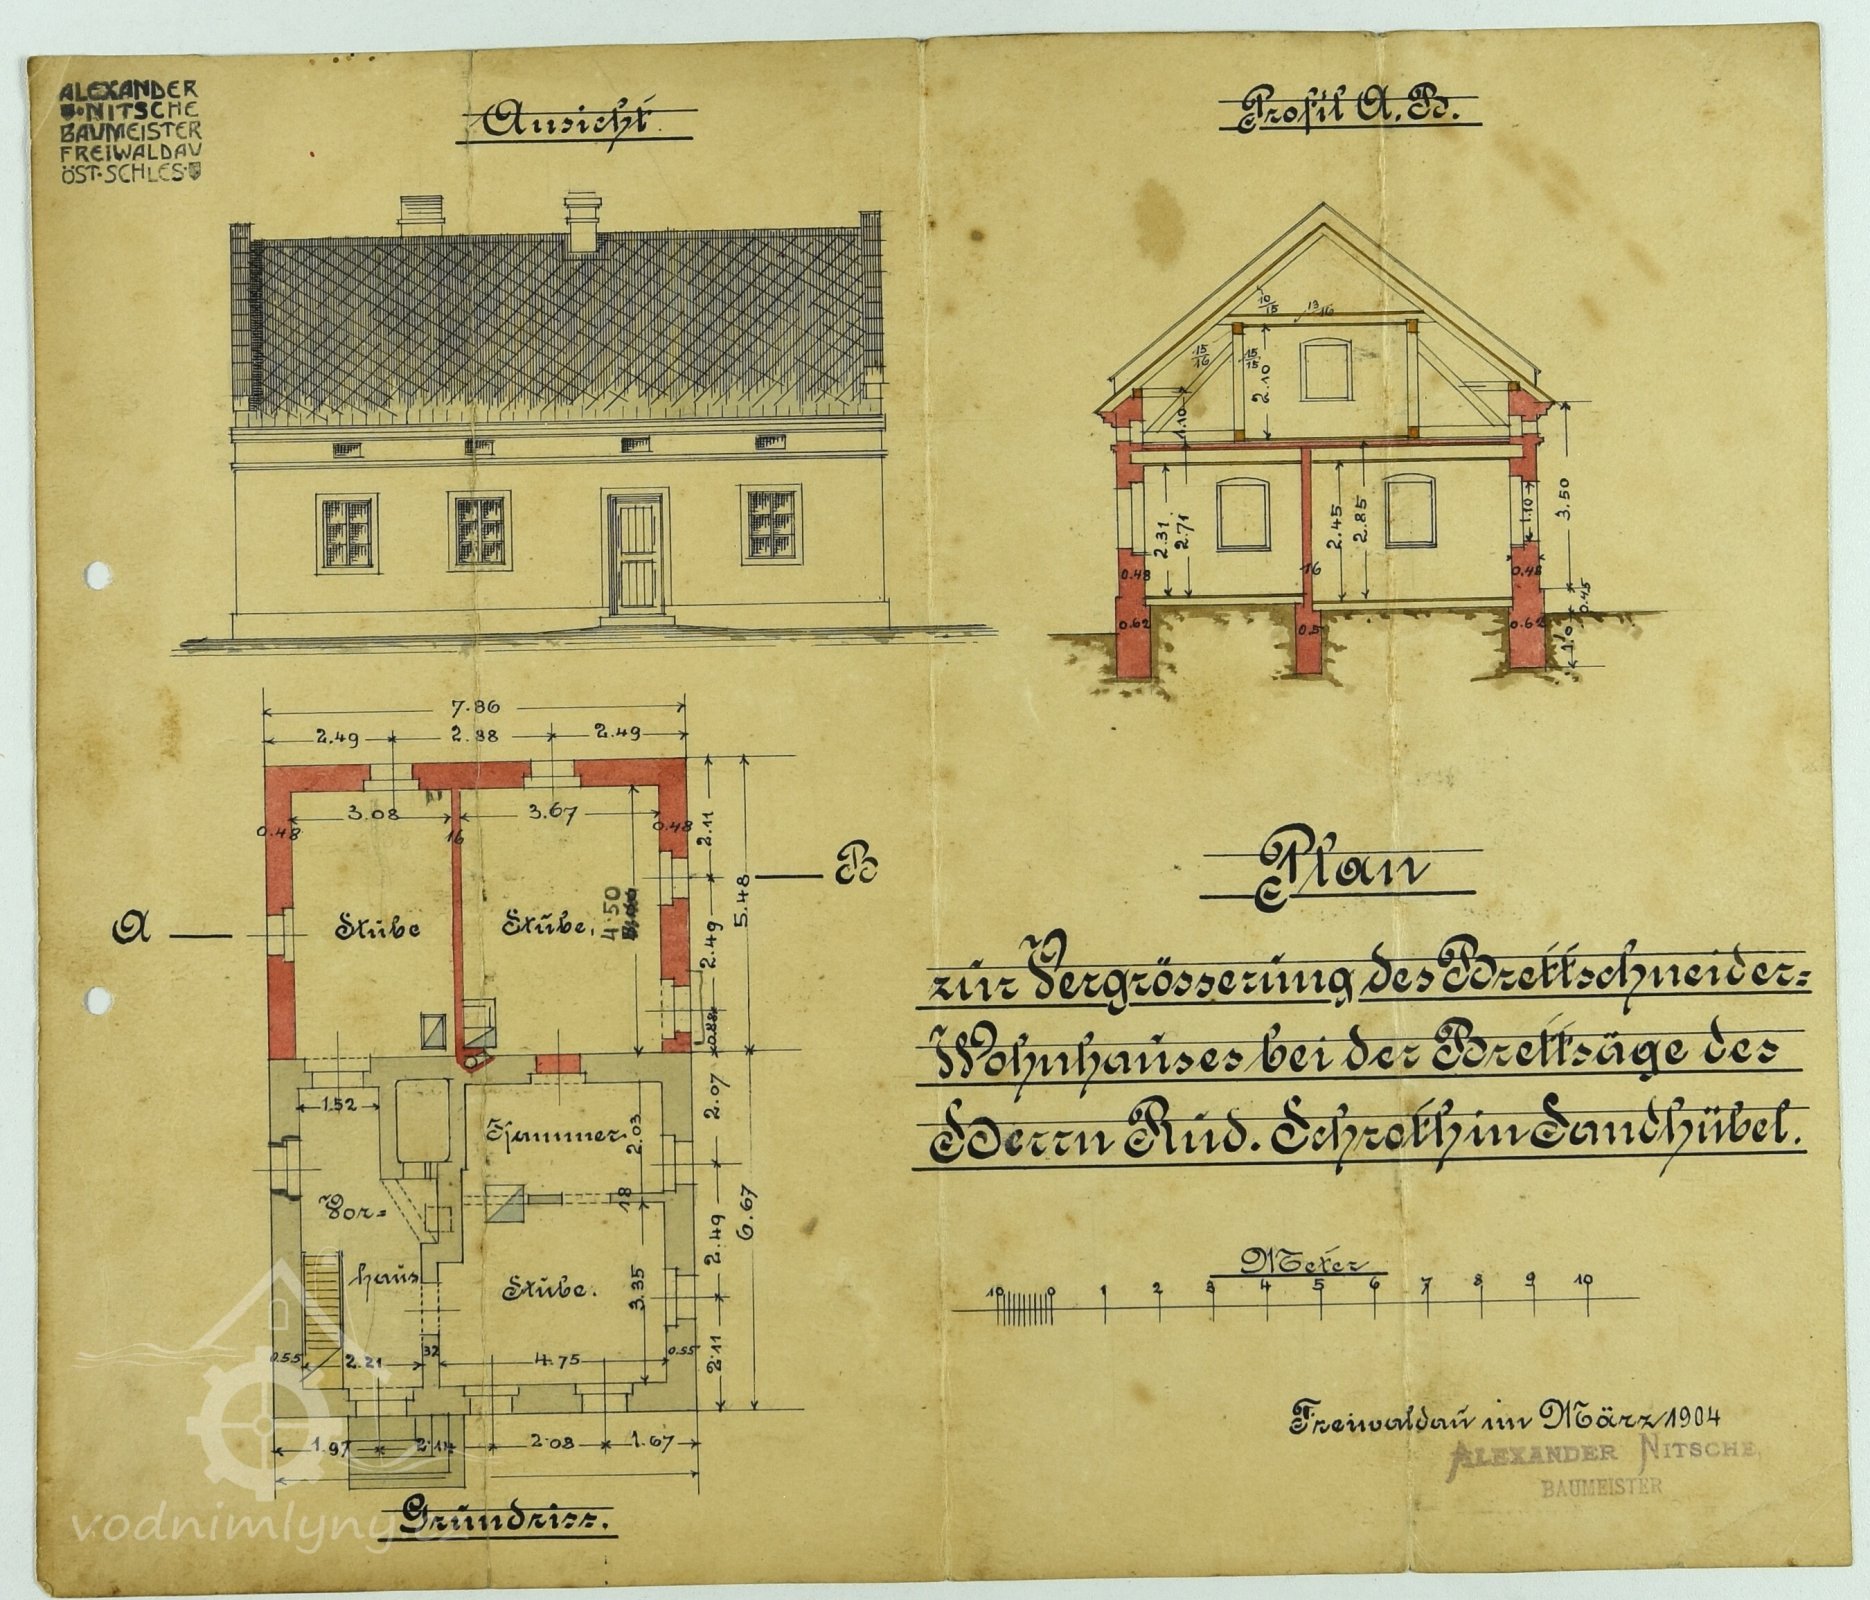 ALEXANDER
NITSCHE
BAUMEISTER
FREIWALDAU
ÖST. SCHLES.
Ansicht.
Profil A.B.
10/15
13/16
15/16
15/15
2.10
1.10
2.31
2.71
2.45
2.85
1.10
3.50
0.48
16
0.48
0.45
0.62
0.5
0.62
7.86
2.49
2.88
2.49
3.08
3.67
0.48
16
0.48
2.11
B
5.48
A
Stube
Stube.
4.50
2.49
0.88
Plan
zur Vergrösserung des Brettschneider-
Wohnhauses bei der Brettsäge des
Herrn Rud. Schroth in Sandhübel.
1.52
Kammer.
2.03
2.07
Vor-
18
2.49
6.67
haus
Stube.
3.35
Meter
10 0 1 2 3 4 5 6 7 8 9 10
0.55
2.21
32
4.75
0.55
2.11
1.97
2.11
2.08
1.67
Freiwaldau im März 1904
ALEXANDER NITSCHE,
BAUMEISTER
Grundriss.
vodnimlyny